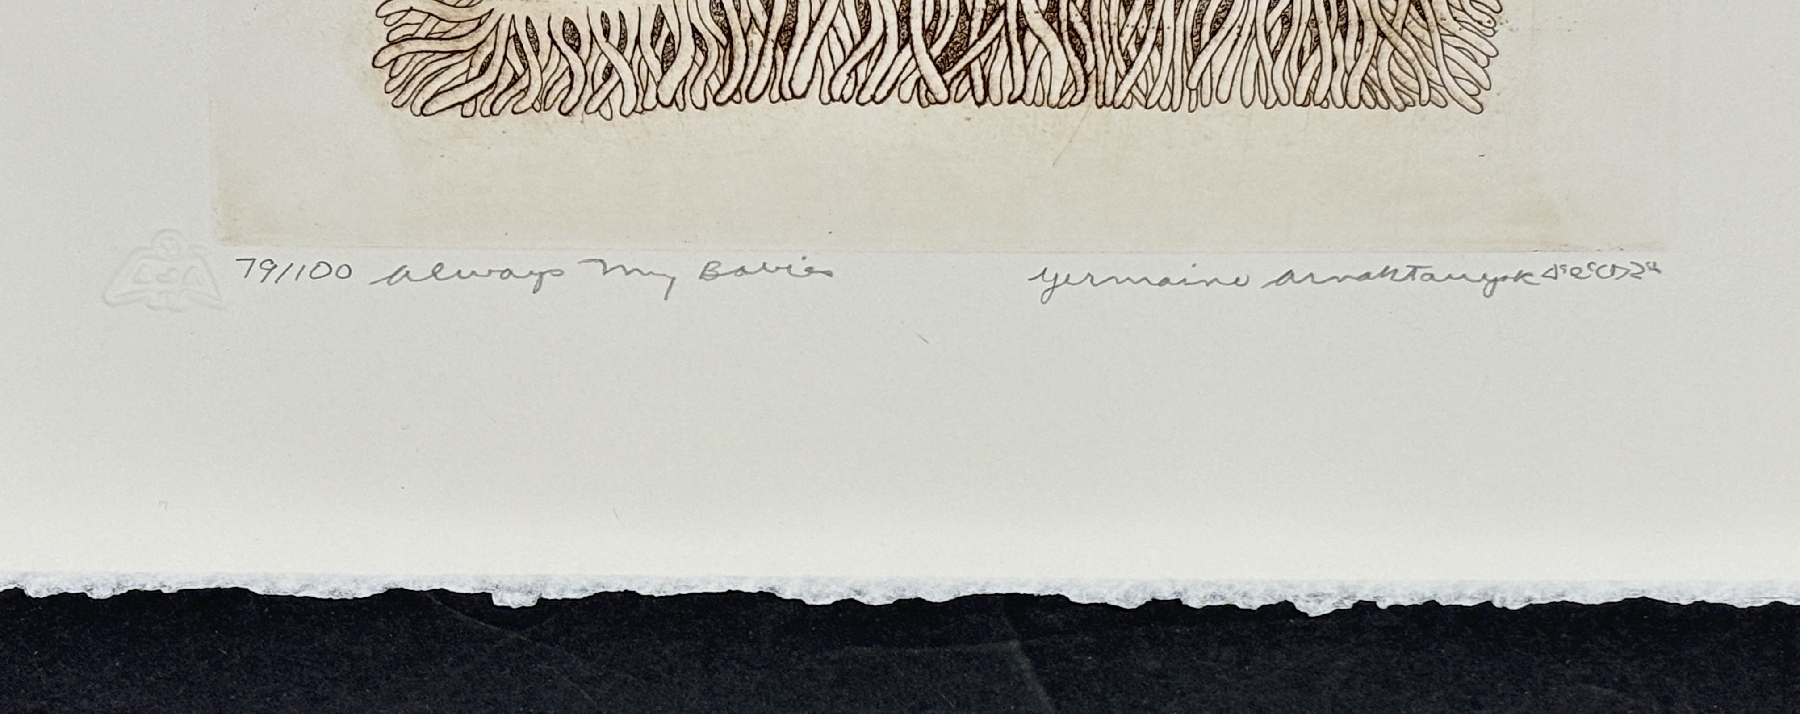 79/100 Always My Babies Germaine Arnaktauyok ᐊᕐᓇᒃᑕᐅᔪᖅ